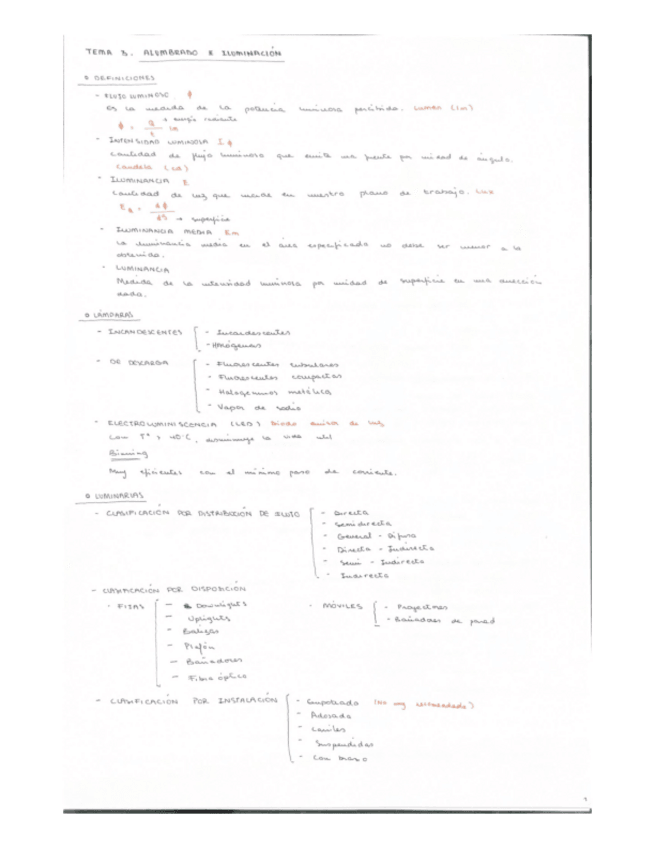 TEMA 3. ALUMBRADO E ILUMINACIÓN
DEFINICIONES
- FLUJO LUMINOSO ϕ
Es la medida de la potencia luminosa percibida. Lumen (lm)
ϕ = Q / t lm → energía radiante
- INTENSIDAD LUMINOSA I
Cantidad de flujo luminoso que emite una fuente por unidad de ángulo.
Candela (cd)
- ILUMINANCIA E
Cantidad de luz que incide en nuestro plano de trabajo. Lux
E = dϕ / dS → superficie
- ILUMINANCIA MEDIA Em
La iluminancia media en el área especificada no debe ser menor a la
obtenida.
- LUMINANCIA
Medida de la intensidad luminosa por unidad de superficie en una dirección
dada.
LÁMPARAS
- INCANDESCENTES
- Incandescentes
- Halógenas
- DE DESCARGA
- Fluorescentes tubulares
- Fluorescentes compactas
- Halogenuros metálica
- Vapor de sodio
- ELECTROLUMINISCENCIA (LED) Diodo emisor de luz
Con Tª > 40°C, disminuye la vida útil
Binning
Muy eficientes con el mínimo paso de corriente.
LUMINARIAS
- CLASIFICACIÓN POR DISTRIBUCIÓN DE FLUJO
- Directa
- Semidirecta
- General - Difusa
- Directa - Indirecta
- Semi - Indirecta
- Indirecta
- CLASIFICACIÓN POR DISPOSICIÓN
- FIJAS
- Downlights
- Uplights
- Balizas
- Plafón
- Bañadores
- Fibra óptica
- MÓVILES
- Proyectores
- Bañadores de pared
- CLASIFICACIÓN POR INSTALACIÓN
- Empotrada (No muy
- Adosada
- Carriles
- Suspendidas
- Con brazo
1